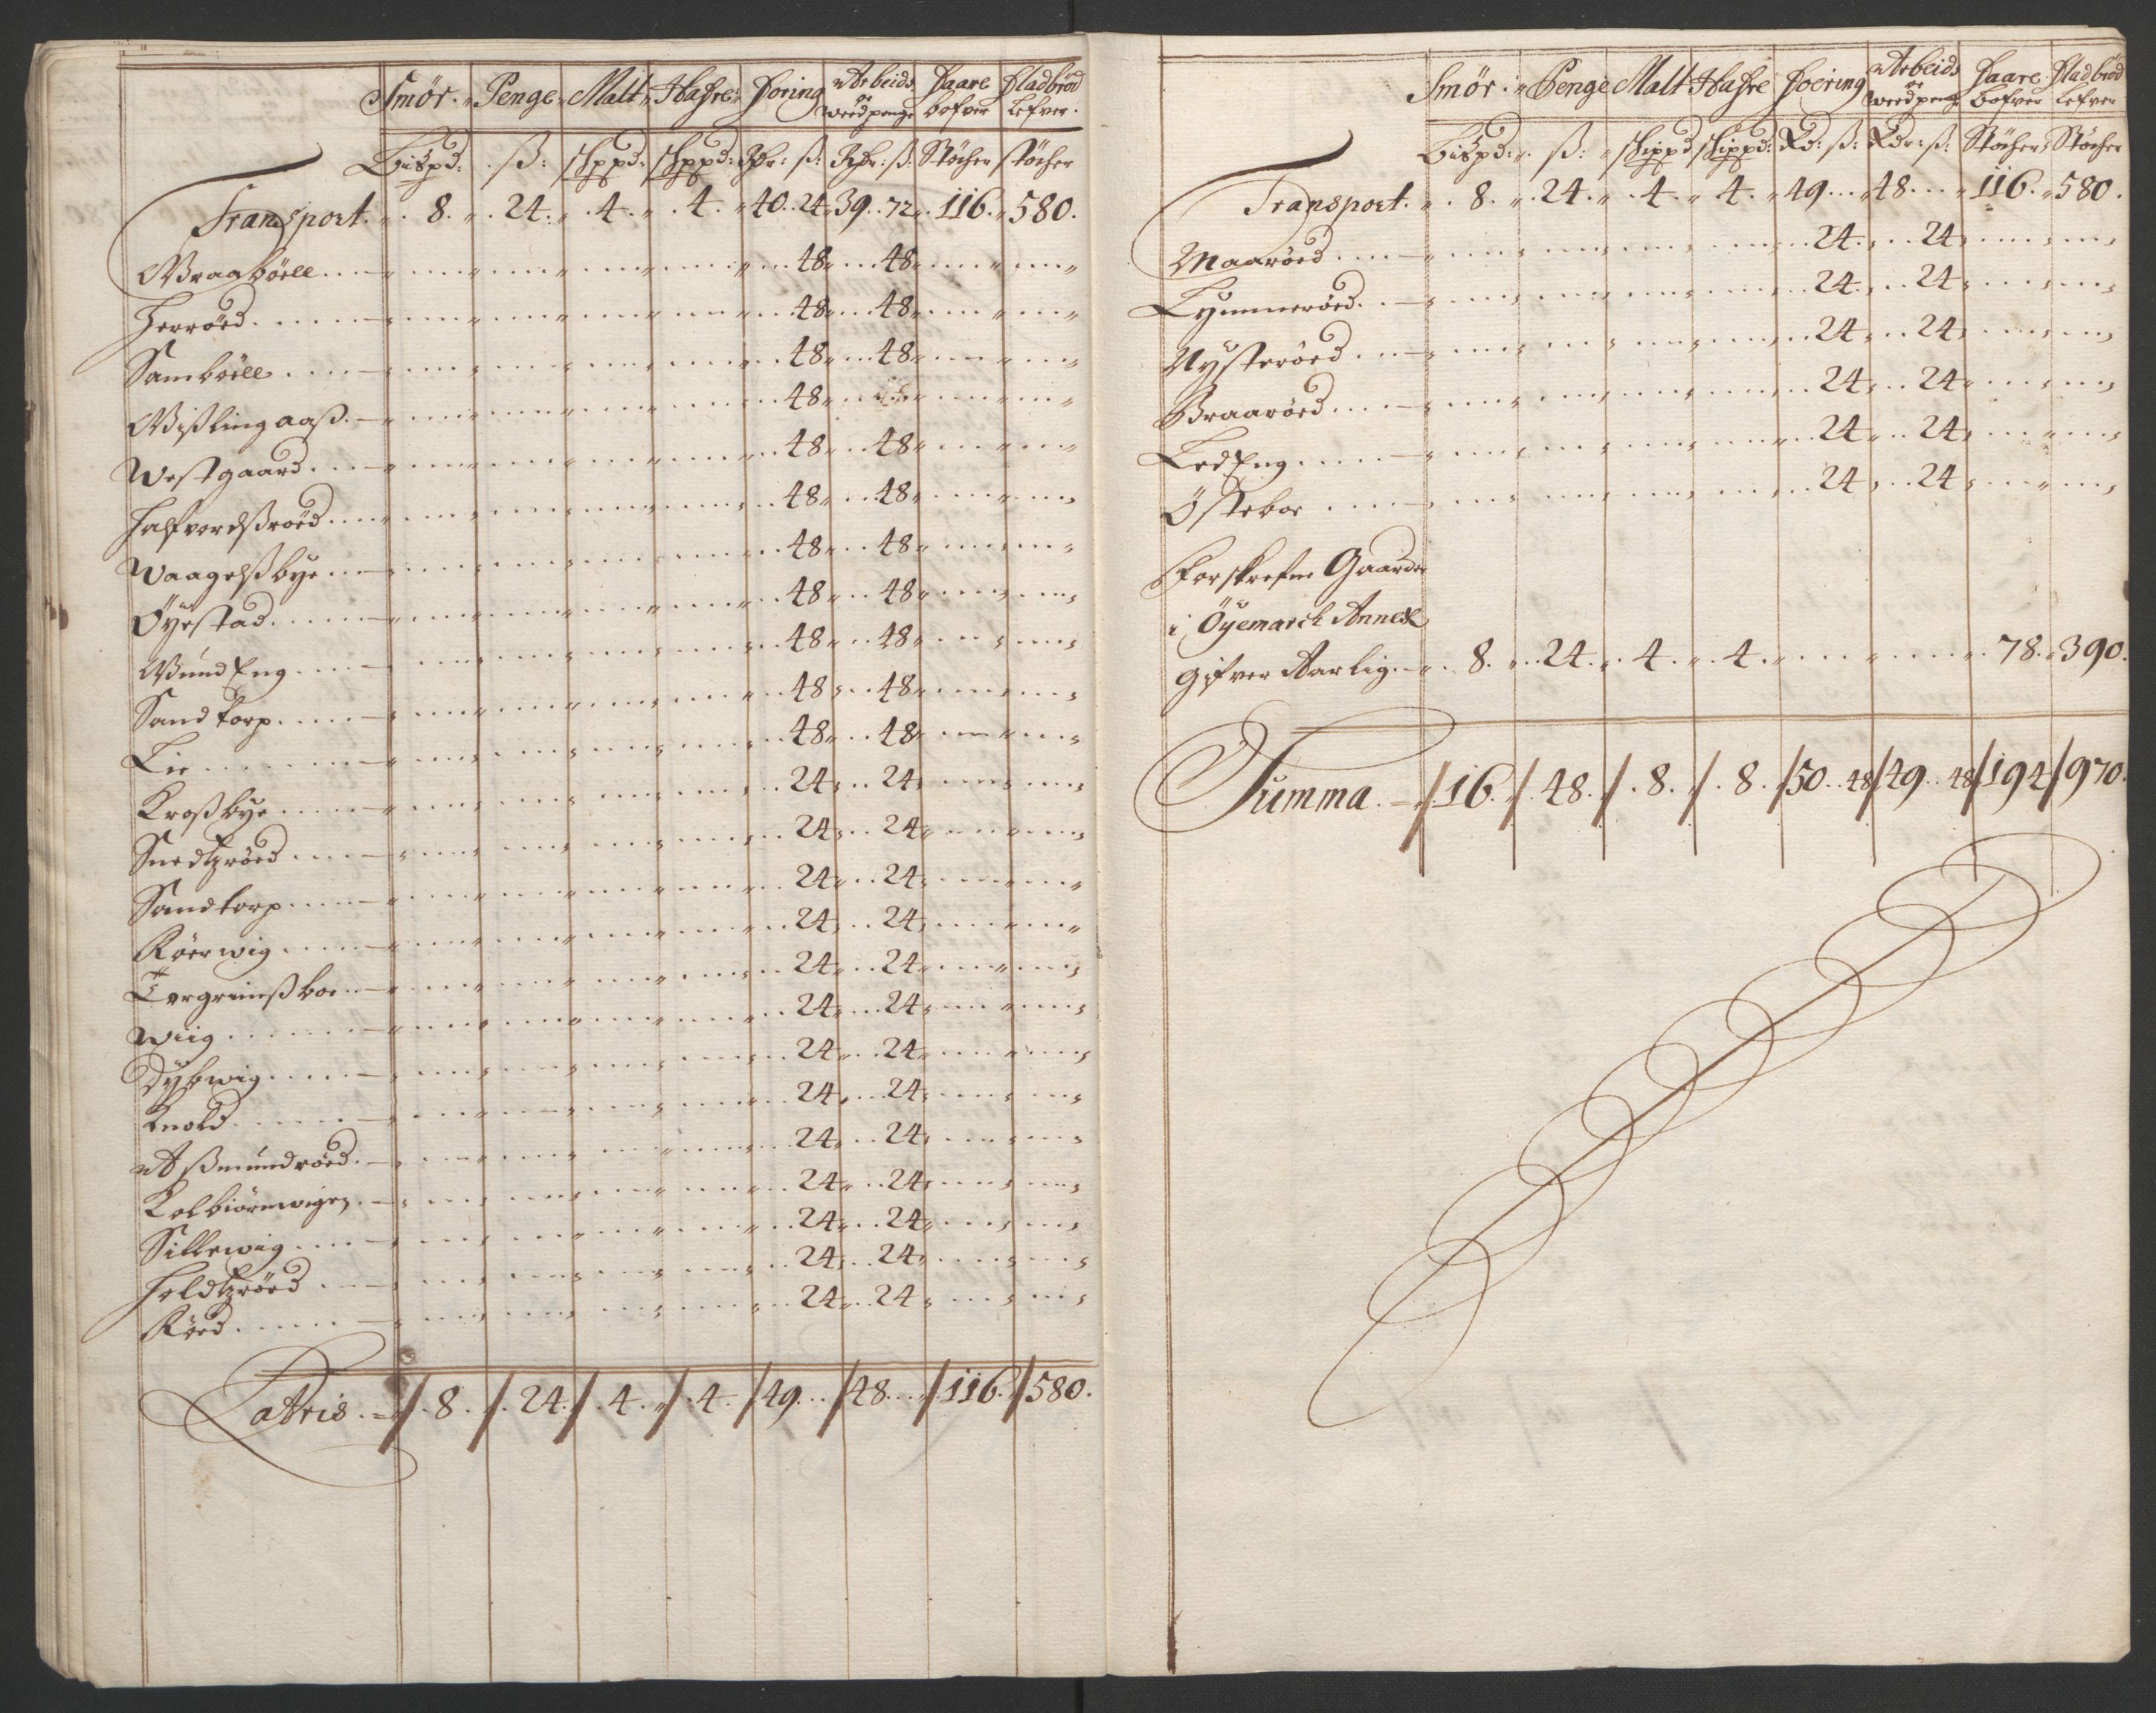 Smör. Penge Malt Hafre Foring Arbeids oc weedpenge Haare bofver Fladbröd Lefver.
Bispd: ß: skppd: skppd: Rdr: ß: Rdr: ß: Stöcher stöcher
Transport. 8. 24. 4. 4. 40. 24 39. 72 116. 580.
Braaböell 48 48
Herröed 48 48
Samböell 48 48
Wißlingaaß 48
Westgaard 48 48
Halfvordßröed 48 48
Waagelßbye 48 48
Öyestad 48 48
BundEng 48 48
Sandtorp 48 48
Lie 48 48
Kroßbye 24 24
Snedtzröed 24 24
Sandtorp 24 24
Röerwig 24 24
Torgrimßboe 24 24
Wiig 24 24
Dybwig 24 24
Knold 24 24
Aßmundröed 24 24
Kolbiörnwigen 24 24
Sillewig 24 24
Holdtzröed 24 24
Röed 24 24
Latris. 8. 24. 4. 4. 49. 48. 116. 580.
Smör. Penge Malt Hafre Foering Arbeids oc weedpenge Haare bofver Fladbröd Lefver
Bispd: ß: skippd skippd: Rd: ß: Rdr: ß: Stöcher Stöcher
Transport. 8. 24. 4. 4. 49. 48. 116. 580.
Maaröed 24 24
Lyummeröed 24 24
Nysteröed 24 24
Braaröed 24 24
LedEng 24 24
Östeboe 24 24
Forskrefne Gaarder
i Öyemarck Annex
gifver Aarlig. 8. 24. 4. 4. 78. 390.
Summa. 16. 48. 8. 8. 50. 48 49. 48 194 970.